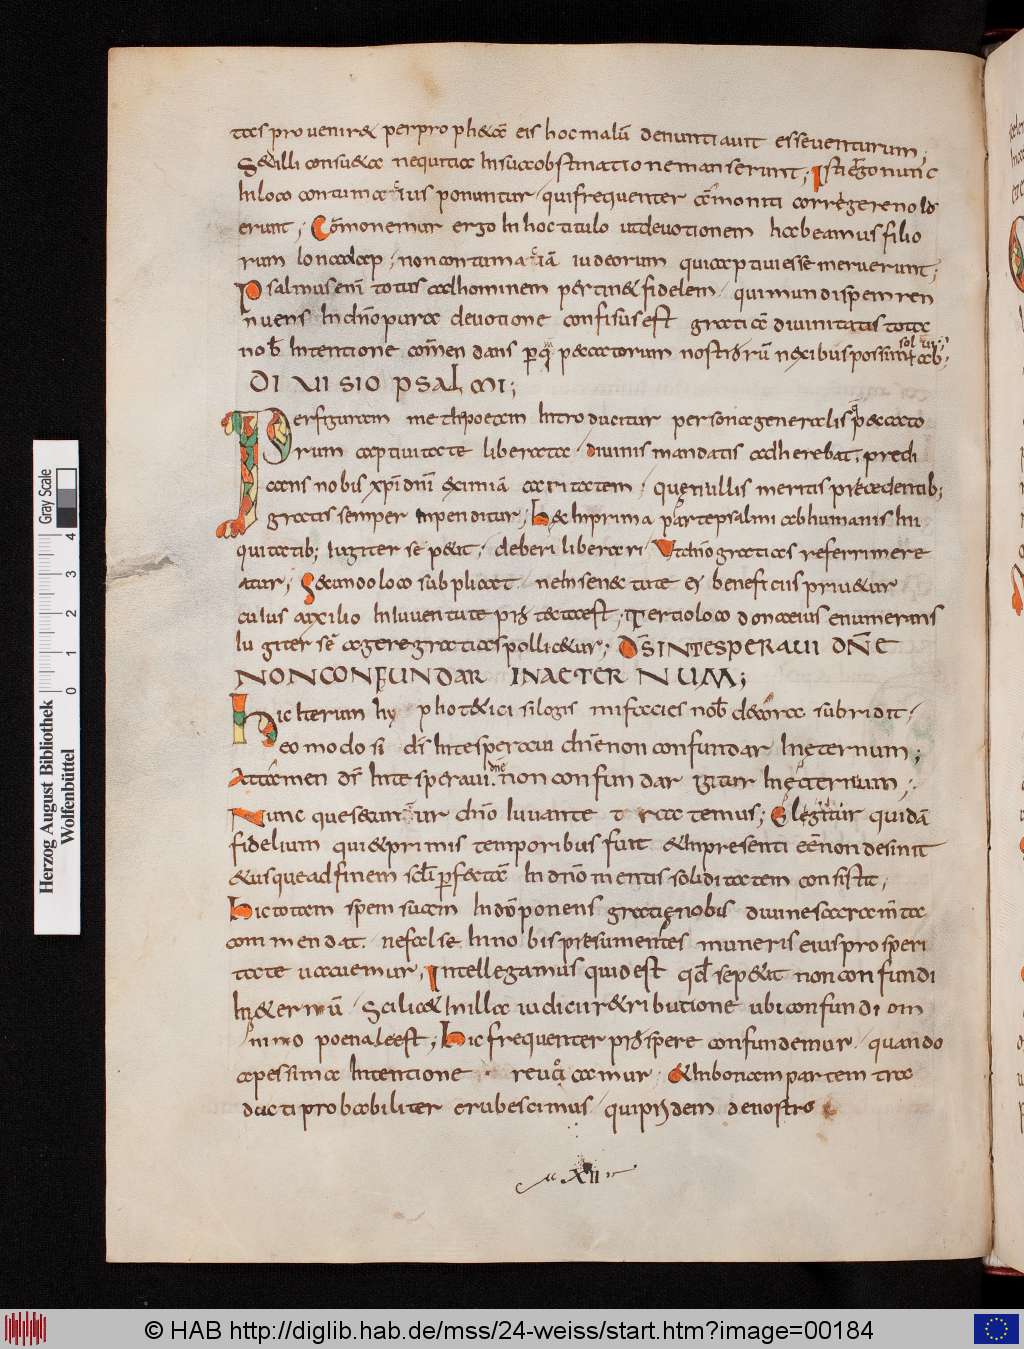 tas provenire & per proph&ā eis hoc malū denuntiavit esse venturum;
Sed illi consu&a nequitia In sua obstinatione manserunt; Isti ergo nunc
In loco contumacius ponuntur qui frequenter cōmoniti corrigere nolu
erunt; Cōmonemur ergo In hoc titulo ut devotionem habeamus filio
rum Ionadap, non contumaciā iudeorum qui captivi esse meruerunt;
Psalmus enī totus ad hominem pertin& fidelem qui mundi spem ren
nuens In dn̄o pura devotione confisus est gratiā divinitatis tota
nob̄ Intentione cōmendans per quā peccatorum nostrorū nexibus possimus ab
solui;
DIVISIO PSALMI;
Per figuram methopoeam Introducitur persona generalis pecato
rum captivitate liberata divinis mandatis adherebat; predi
cans nobis xpī dnī eximiā caritatem, que nullis meritis precedentib;
gratis semper Inpenditur; Haec In prima parte psalmi ab humanis Ini
quitatib; Iugiter se p&it deberi liberari Ut dn̄o gratias referri mere
atur; Secundo loco subplicat ne In senectute ei beneficiis priu&ur
cuius auxilio In iuventute protecta est; Tertio loco dona eius enumerans
Iugiter se agere gratias pollic&ur; DS IN TE SPERAVI DN̄E
NON CONFUNDAR IN AETERNUM;
Hic Iterum hy poth&ici silogismi facies nob̄ decora subridit;
eo modo si dn̄e In te speravi dn̄e non confundar In eternum;
Attamen dn̄e In te speravi dn̄e non confundar igitur In eternum;
Nunc que secuntur dn̄o Iuvante tractemus; Eleg̅itur quidā
fidelium qui & primis temporibus fuit & In presenti eē non desinit
& usque ad finem sc̄li perfectā In dn̄o mentis soliditatem consistit;
Hic totam spem suam In dn̄o ponens gratie nobis divine sacramta
commendat. ne false In nobis presumentes muneris eius prosperi
tate vacuemur; Intellegamus quid est qd̄ sep&it non confundi
In &ernū scilic& In illa iudicii r&ributione ubi confundi om
nino poenale est; Hic frequenter prospere confundemur quando
a pessima Intentione revocamur & In bonam partem tra
ducti probabiliter erubescimus qui pridem de nostro
XII
Herzog August Bibliothek
Wolfenbüttel
Gray Scale
0 1 2 3 4
© HAB http://diglib.hab.de/mss/24-weiss/start.htm?image=00184